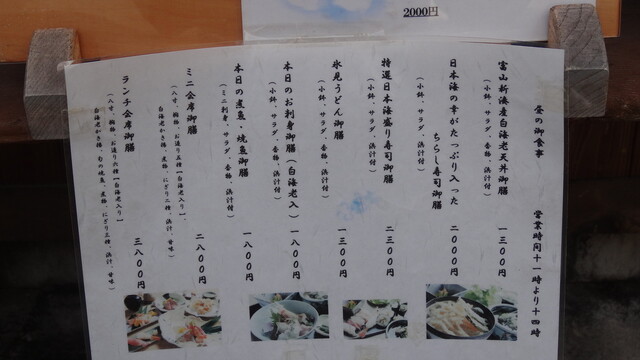 2000円
昼の御食事
営業時間十一時より十四時
富山新湊産白海老天丼御膳
(小鉢、サラダ、香物、浜汁付)
一三〇〇円
日本海の幸がたっぷり入った
ちらし寿司御膳
(小鉢、サラダ、香物、浜汁付)
二〇〇〇円
特選日本海盛り寿司御膳
(小鉢、サラダ、浜汁付)
二三〇〇円
氷見うどん御膳
(小鉢、サラダ、香物付)
一三〇〇円
本日のお刺身御膳(白海老入)
(小鉢、サラダ、香物、浜汁付)
一八〇〇円
本日の煮魚・焼魚御膳
(ミニ刺身、サラダ、香物、浜汁付)
一八〇〇円
ミニ会席御膳
(八寸、酢物、お造り三種【白海老入り】、
白海老かき揚、煮物、にぎり二種、浜汁、甘味)
二八〇〇円
ランチ会席御膳
(八寸、酢物、お造り六種【白海老入り】、
白海老かき揚、旬の焼魚、煮物、にぎり三種、浜汁、甘味)
三八〇〇円